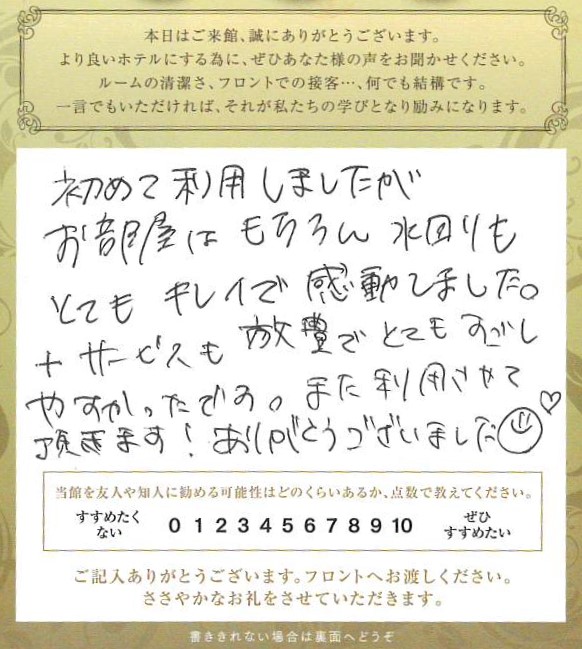 本日はご来館、誠にありがとうございます。
より良いホテルにする為に、ぜひあなた様の声をお聞かせください。
ルームの清潔さ、フロントでの接客…、何でも結構です。
一言でもいただければ、それが私たちの学びとなり励みになります。
初めて利用しましたが
お部屋はもちろん水回りも
とても キレイで 感動しました。
+ サービスも 豊でとてもすごし
やすかったです。また利用させて
頂きます! ありがとうございました
当館を友人や知人に勧める可能性はどのくらいあるか、点数で教えてください。
すすめたく
ない
0 1 2 3 4 5 6 7 8 9 10
ぜひ
すすめたい
ご記入ありがとうございます。フロントへお渡しください。
ささやかなお礼をさせていただきます。
書ききれない場合は裏面へどうぞ